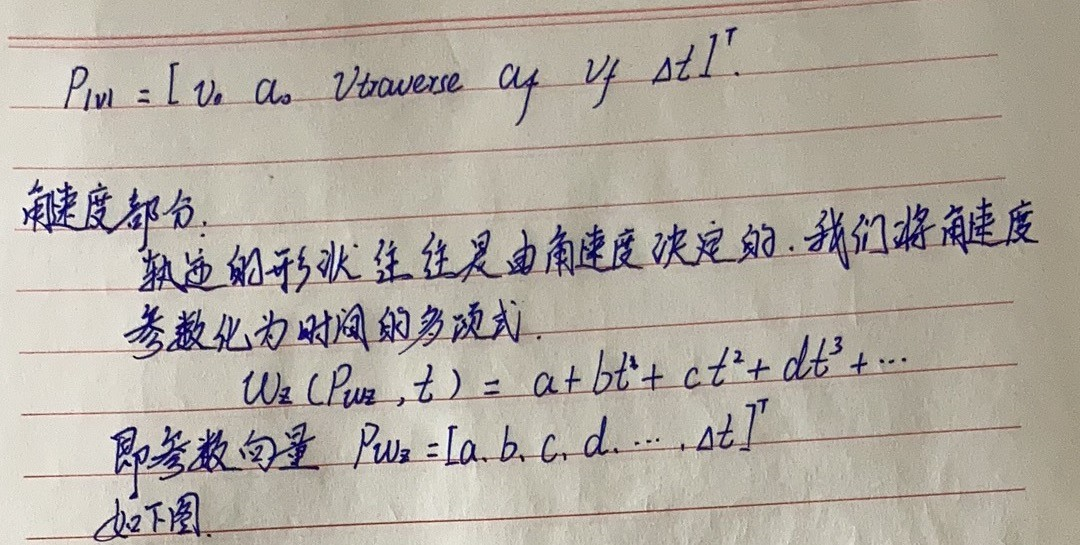 P|v| = [ v₀ a₀ Vtraverse af vf Δt ]ᵀ.
角速度部分.
轨迹的形状往往是由角速度决定的.我们将角速度
参数化为时间的多项式.
ωz (Pωz , t) = a + bt¹ + ct² + dt³ + ⋯
即参数向量 Pωz = [a. b. c. d. ⋯ . Δt]ᵀ
如下图.